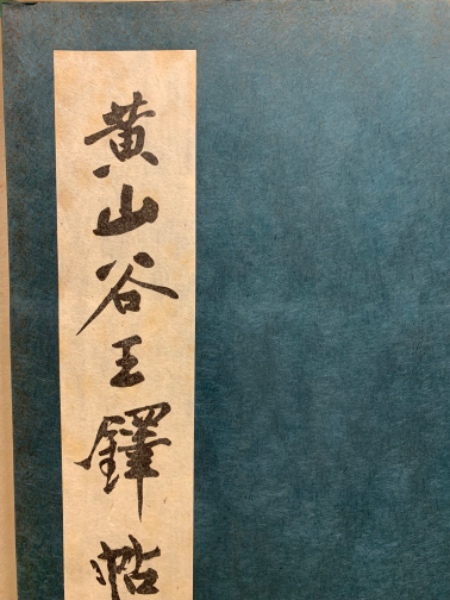 黄山谷王鐸帖